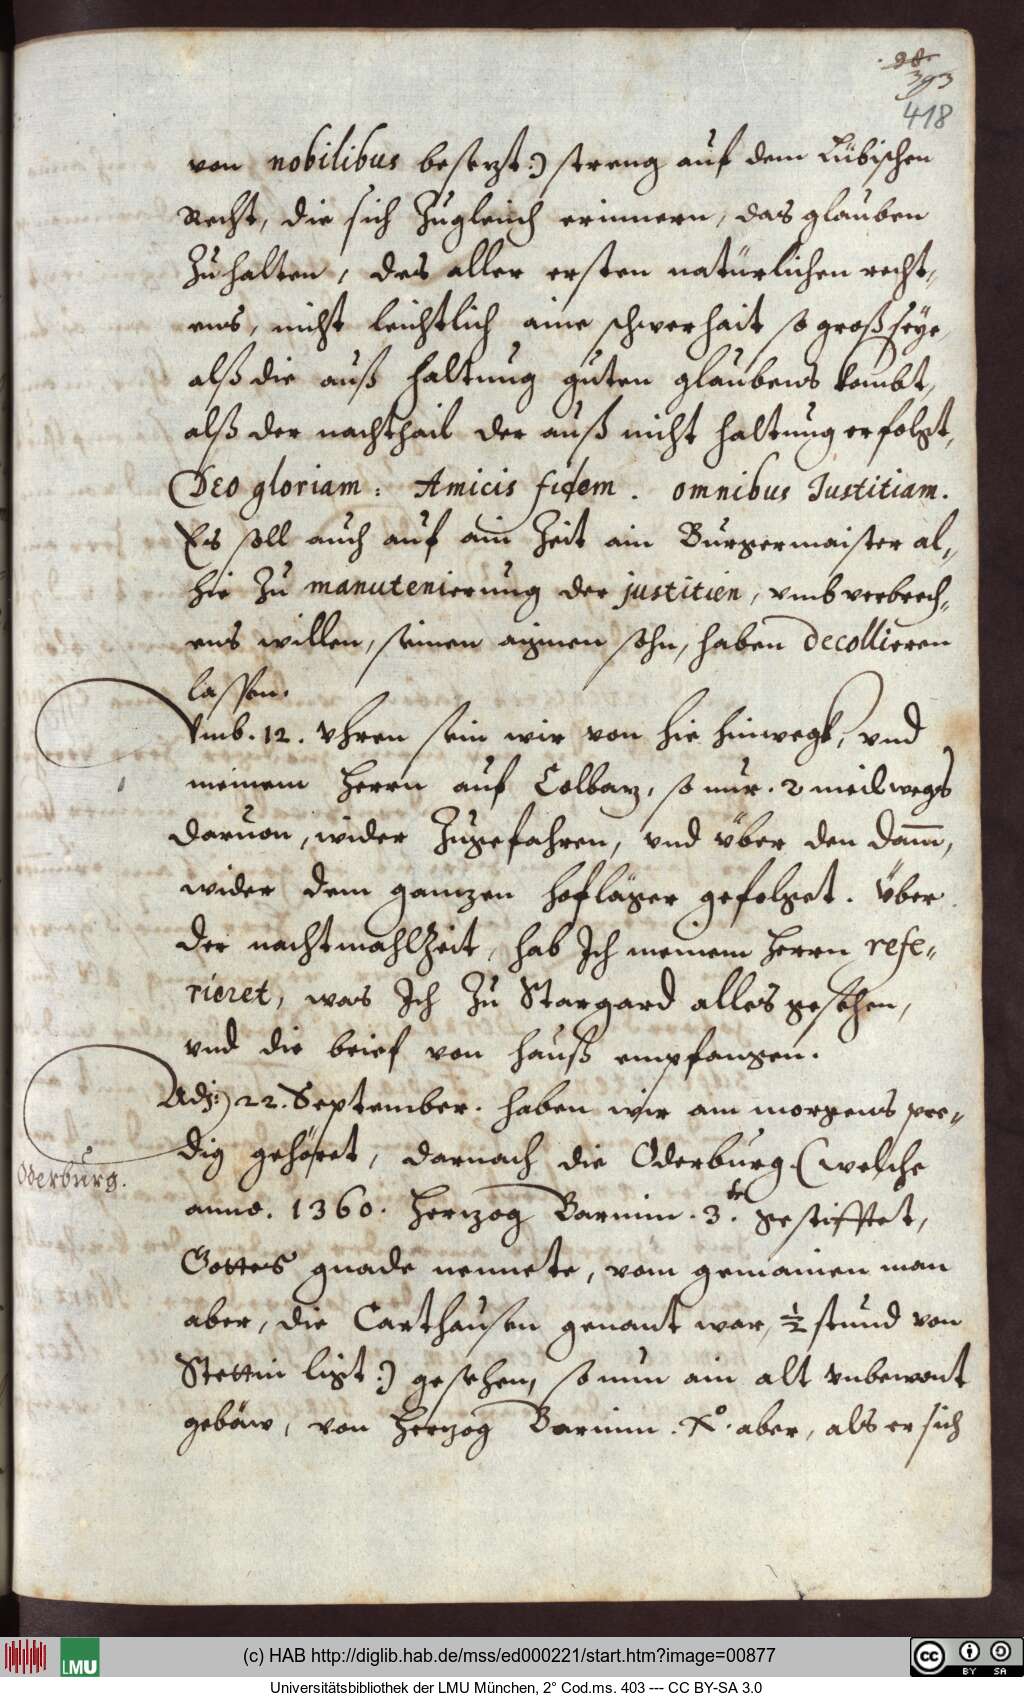 393
418
von nobilibus besetzt:) streng auf dem Lübischen
Recht, die sich Zugleich erinnern, das glauben
Zuhalten, des aller ersten natürlichen recht,,
ens, nicht leichtlich aine schwerhait so groß seye,
alß die auß haltung guten glaubens kombt,
alß der nachthail der auß nicht haltung erfolgt,
Deo gloriam: Amicis fidem. omnibus Justitiam.
Es soll auch auf ain Zeit ain Burgermaister al,,
hie Zu manutenierung der justitien, vmb verbrech,,
ens willen, seinen aignen sohn, haben decollieren
lassen.
Vmb. 12. Vhren sein wir von hie hinwegk, vnd
meinem Herrn auf Colbaz, so nur. 2 meil wegs
daruon, wider Zugefahren, vnd über den Damm,
wider dem gantzen hofläger gefolget. Über
der nachtmahlZeit, hab Ich meinem Herrn refe,,
rieret, was Ich Zu Stargard alles gesehen,
vnd die brief von hauß empfangen.
Adj:) 22. September. haben wir am morgens pre,,
dig gehöret, darnach die Oderburg (welche
Oderburg.
anno. 1360. Hertzog Barnim. 3.te gestifftet,
Gottes gnade nennete, vom gemainen man
aber, die Carthausen genant war, ½ stund von
Stettin ligt:) gesehen, so nun ain alt vnbewont
gebäw, von Hertzog Barnim. Xo. aber, als er sich
(c) HAB http://diglib.hab.de/mss/ed000221/start.htm?image=00877
LMU
cc BY SA
Universitätsbibliothek der LMU München, 2° Cod.ms. 403 --- CC BY-SA 3.0